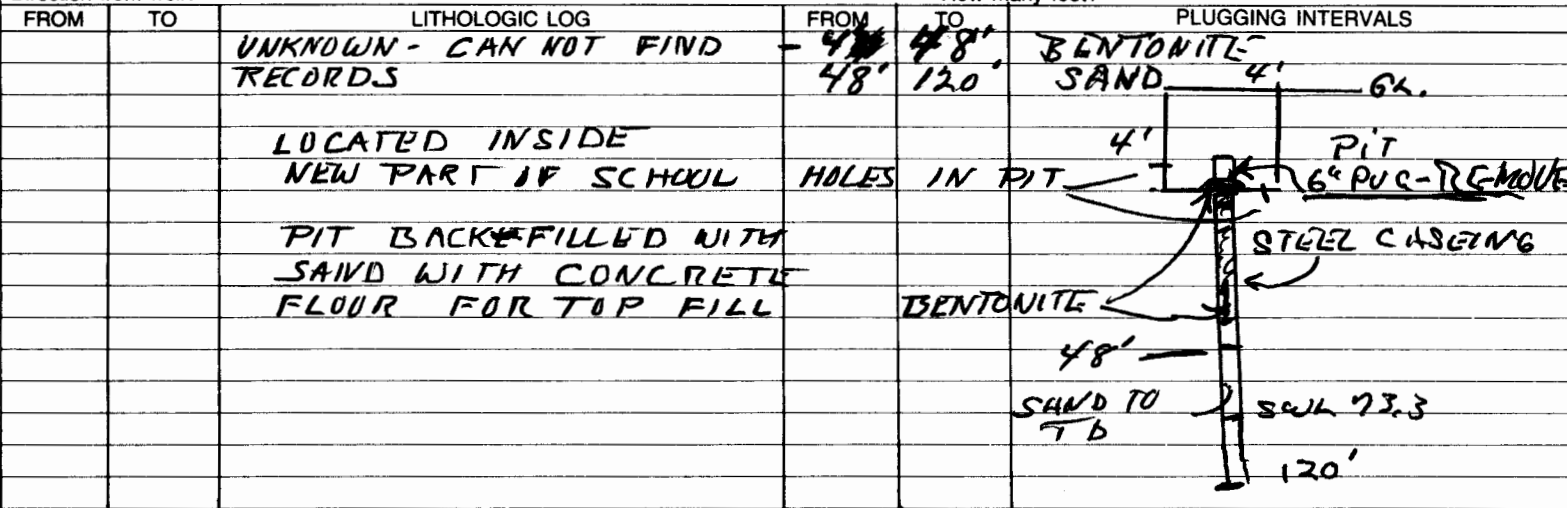 FROM TO LITHOLOGIC LOG FROM TO PLUGGING INTERVALS
UNKNOWN - CAN NOT FIND - 4 48' BENTONITE
RECORDS 48' 120' SAND 4' GL.
LOCATED INSIDE 4' PIT
NEW PART OF SCHOOL HOLES IN PIT 6" PVC-REMOVE
PIT BACKFILLED WITH STEEL CASEING
SAND WITH CONCRETE
FLOUR FOR TOP FILL BENTONITE
48'
SAND TO SWL 73.3
TD
120'